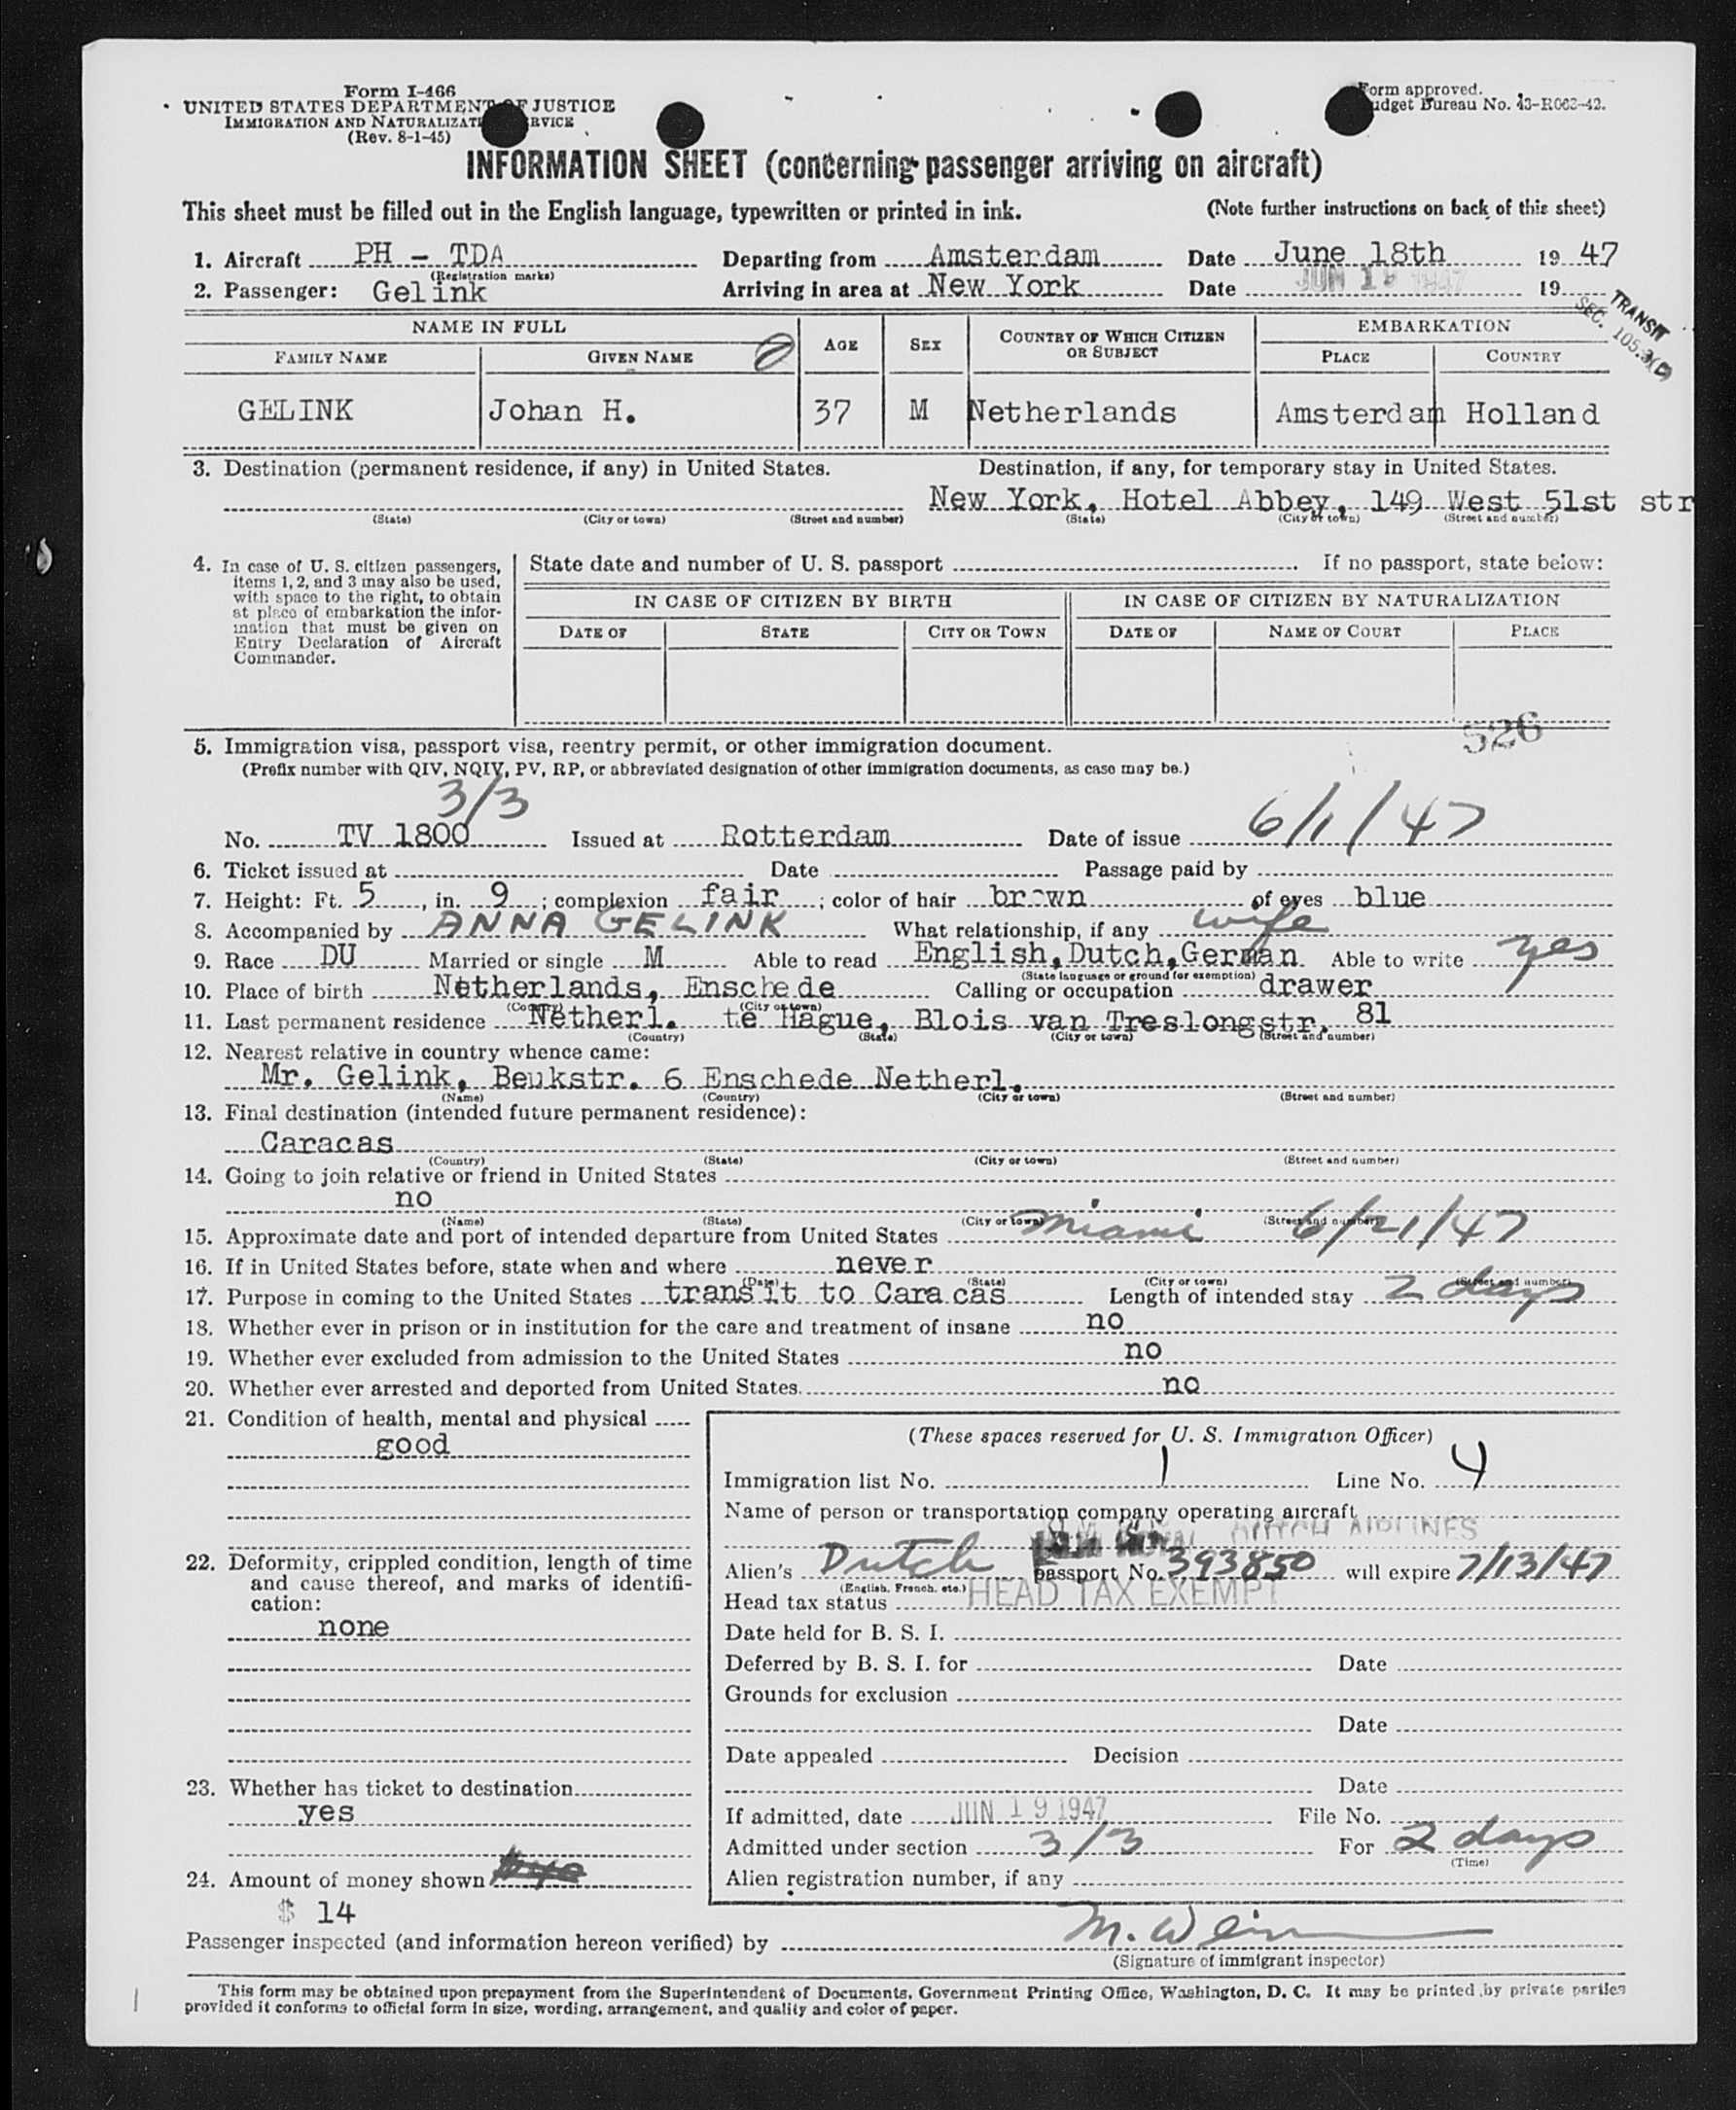 Form I-466
UNITED STATES DEPARTMENT OF JUSTICE
IMMIGRATION AND NATURALIZATI RVICE
(Rev. 8-1-45)
Form approved.
udget Bureau No. 43-R063-42.
INFORMATION SHEET (concerning passenger arriving on aircraft)
This sheet must be filled out in the English language, typewritten or printed in ink. (Note further instructions on back of this sheet)
1. Aircraft PH - TDA Departing from Amsterdam Date June 18th 19 47
(Registration marks)
2. Passenger: Gelink Arriving in area at New York Date JUN 1 1947 19
TRANSIT
SEC. 105.3(
NAME IN FULL AGE SEX COUNTRY OF WHICH CITIZEN OR SUBJECT EMBARKATION
FAMILY NAME GIVEN NAME PLACE COUNTRY
GELINK Johan H. 37 M Netherlands Amsterdam Holland
3. Destination (permanent residence, if any) in United States. Destination, if any, for temporary stay in United States.
New York, Hotel Abbey, 149 West 51st str
(State) (City or town) (Street and number) (State) (City or town) (Street and number)
4. In case of U. S. citizen passengers, items 1, 2, and 3 may also be used, with space to the right, to obtain at place of embarkation the information that must be given on Entry Declaration of Aircraft Commander.
State date and number of U. S. passport If no passport, state below:
IN CASE OF CITIZEN BY BIRTH IN CASE OF CITIZEN BY NATURALIZATION
DATE OF STATE CITY OR TOWN DATE OF NAME OF COURT PLACE
526
5. Immigration visa, passport visa, reentry permit, or other immigration document.
(Prefix number with QIV, NQIV, PV, RP, or abbreviated designation of other immigration documents, as case may be.)
3/3
No. TV 1800 Issued at Rotterdam Date of issue 6/1/47
6. Ticket issued at Date Passage paid by
7. Height: Ft. 5, in. 9; complexion fair; color of hair brown of eyes blue
8. Accompanied by ANNA GELINK What relationship, if any wife
9. Race DU Married or single M Able to read English,Dutch,German Able to write yes
(State language or ground for exemption)
10. Place of birth Netherlands, Enschede Calling or occupation drawer
(Country) (City or town)
11. Last permanent residence Netherl. te Hague, Blois van Treslongstr. 81
(Country) (State) (City or town) (Street and number)
12. Nearest relative in country whence came:
Mr. Gelink, Beukstr. 6 Enschede Netherl.
(Name) (Country) (City or town) (Street and number)
13. Final destination (intended future permanent residence):
Caracas
(Country) (State) (City or town) (Street and number)
14. Going to join relative or friend in United States
no
(Name) (State) (City or town) (Street and number)
15. Approximate date and port of intended departure from United States Miami 6/21/47
16. If in United States before, state when and where never
(Date) (State) (City or town) (Street and number)
17. Purpose in coming to the United States transit to Caracas Length of intended stay 2 days
18. Whether ever in prison or in institution for the care and treatment of insane no
19. Whether ever excluded from admission to the United States no
20. Whether ever arrested and deported from United States. no
21. Condition of health, mental and physical
good
22. Deformity, crippled condition, length of time and cause thereof, and marks of identification:
none
23. Whether has ticket to destination
yes
24. Amount of money shown
$ 14
(These spaces reserved for U. S. Immigration Officer)
Immigration list No. 1 Line No. 4
Name of person or transportation company operating aircraft
ROYAL DUTCH AIRLINES
Alien's Dutch passport No. 393850 will expire 7/13/47
(English, French, etc.)
Head tax status HEAD TAX EXEMPT
Date held for B. S. I.
Deferred by B. S. I. for Date
Grounds for exclusion
Date
Date appealed Decision
Date
If admitted, date JUN 19 1947 File No.
Admitted under section 3/3 For 2 days
(Time)
Alien registration number, if any
Passenger inspected (and information hereon verified) by M. Wein
(Signature of immigrant inspector)
This form may be obtained upon prepayment from the Superintendent of Documents, Government Printing Office, Washington, D. C. It may be printed by private parties
provided it conforms to official form in size, wording, arrangement, and quality and color of paper.